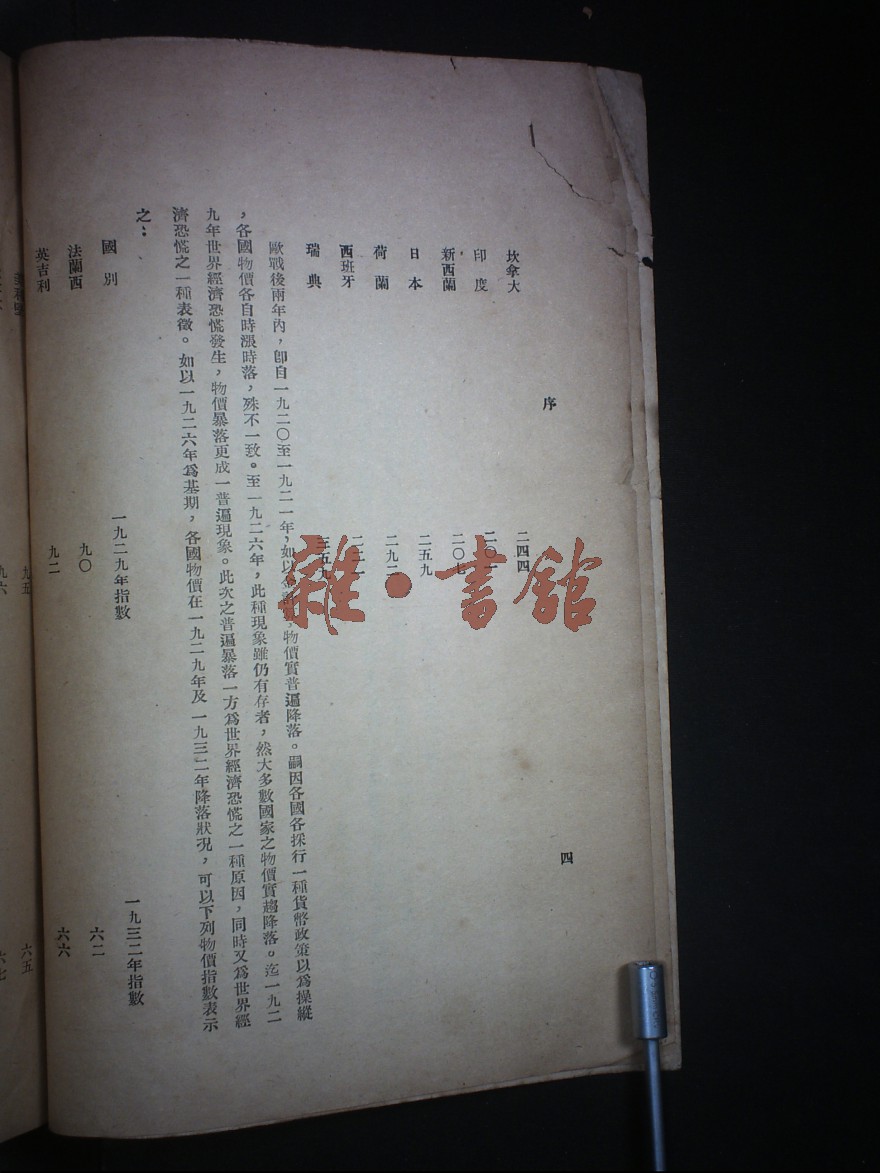 序
四
坎拿大 二四四
印度 二〇一
新西蘭 二〇七
日本 二五九
荷蘭 二九二
西班牙
瑞典 三五九
歐戰後兩年內，卽自一九二〇至一九二一年，如以金計算，物價實普遍降落。嗣因各國各採行一種貨幣政策以爲操縱
，各國物價各自時漲時落，殊不一致。至一九二六年，此種現象雖仍有存者，然大多數國家之物價實趨降落。迄一九二
九年世界經濟恐慌發生，物價暴落更成一普遍現象。此次之普遍暴落一方爲世界經濟恐慌之一種原因，同時又爲世界經
濟恐慌之一種表徵。如以一九二六年爲基期，各國物價在一九二九年及一九三二年降落狀况，可以下列物價指數表示
之：
國別 一九二九年指數 一九三二年指數
法蘭西 九〇 六二
英吉利 九二 六六
九五 六五
九六 六七
雜·書館